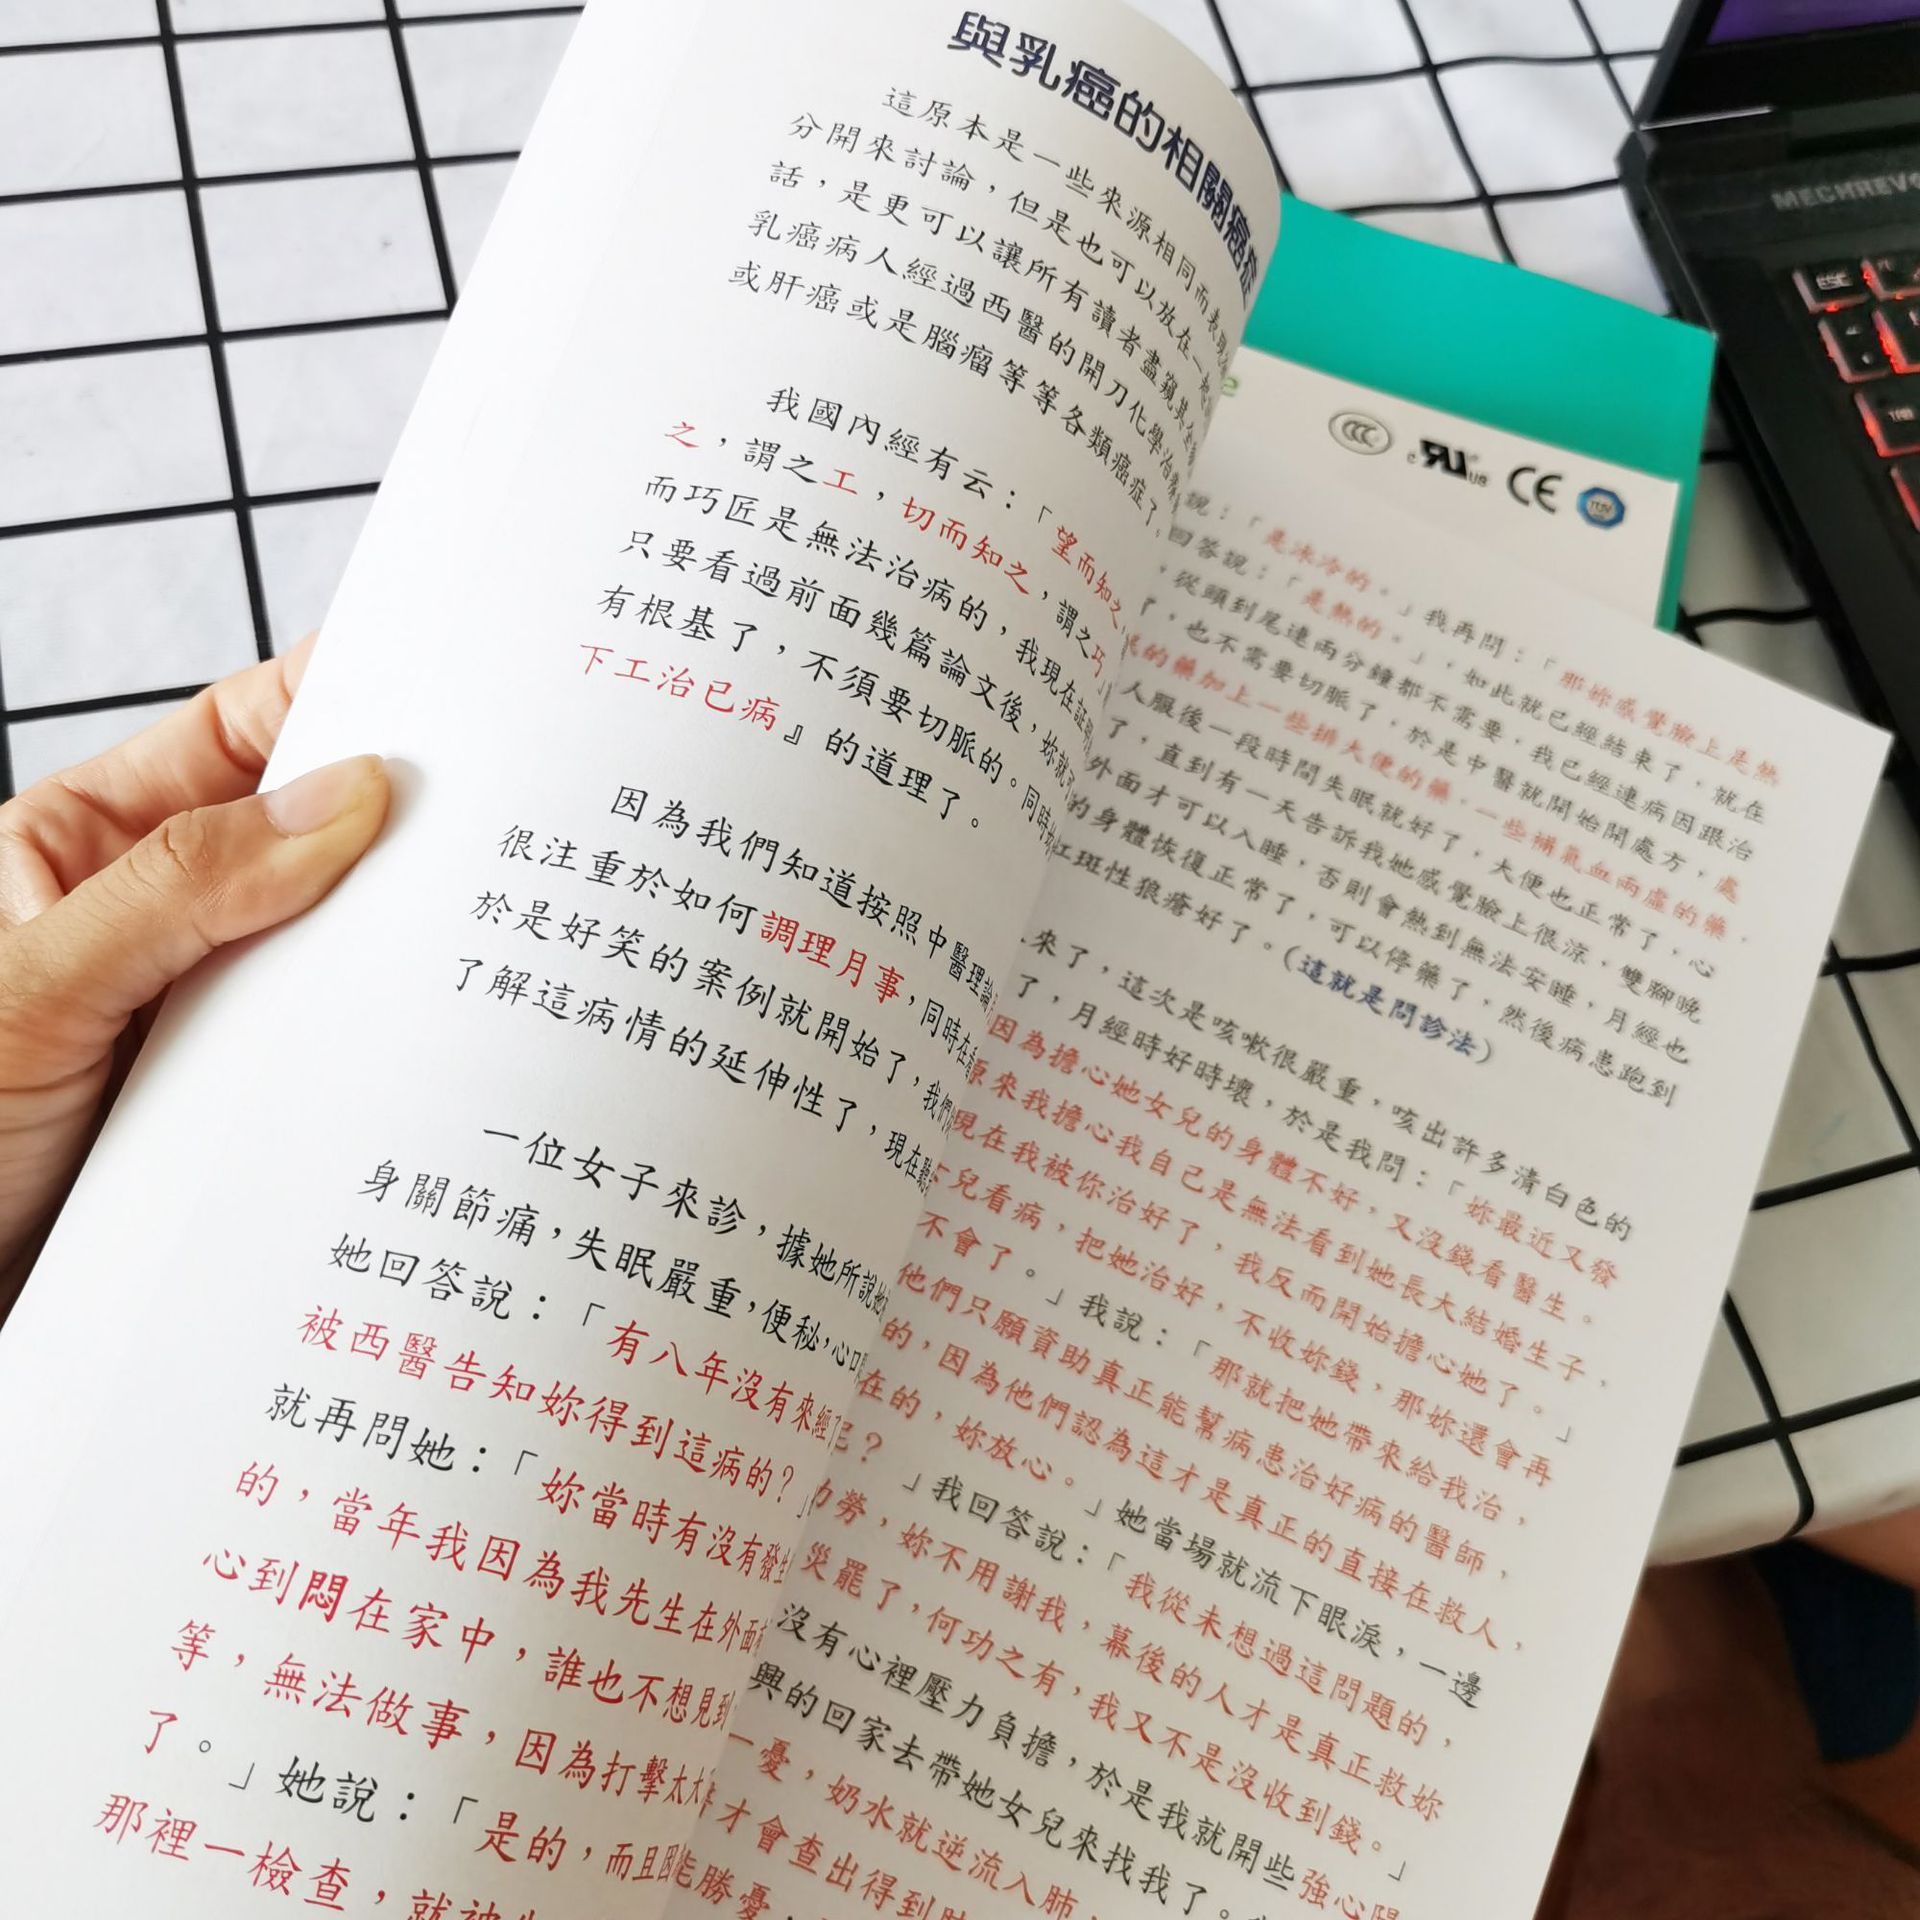 與乳癌的相關癌症
這原本是一些來源相同而表現
分開來討論，但是也可以放在一起
話，是更可以讓所有讀者盡窺其全
乳癌病人經過西醫的開刀化學治療
或肝癌或是腦瘤等等各類癌症了。
我國內經有云：「望而知之，
之，謂之工，切而知之，謂之巧」
而巧匠是無法治病的，我現在証明
只要看過前面幾篇論文後，妳就可
有根基了，不須要切脈的。同時
下工治已病』的道理了。
因為我們知道按照中醫理論
很注重於如何調理月事，同時在
於是好笑的案例就開始了，我們
了解這病情的延伸性了，現在聽
一位女子來診，據她所說她
身關節痛，失眠嚴重，便秘，心口
她回答說：「有八年沒有來經了
被西醫告知妳得到這病的？」
就再問她：「妳當時有沒有發生
的，當年我因為我先生在外面
心到悶在家中，誰也不想見到
等，無法做事，因為打擊太大
了。」她說：「是的，而且因
那裡一檢查，就被
說：「是冰冷的。」我再問：「那妳感覺臉上是熱
回答說：「是熱的。」，如此就已經結束了，就在
，從頭到尾連兩分鐘都不需要，我已經連病因跟治
了，也不需要切脈了，於是中醫就開始開處方，處
的藥加上一些排大便的藥，一些補氣血兩虛的藥，
人服後一段時間失眠就好了，大便也正常了，心
了，直到有一天告訴我她感覺臉上很涼，雙腳晚
外面才可以入睡，否則會熱到無法安睡，月經也
的身體恢復正常了，可以停藥了，然後病患跑到
紅斑性狼瘡好了。（這就是問診法）
來了，這次是咳嗽很嚴重，咳出許多清白色的
了，月經時好時壞，於是我問：「妳最近又發
因為擔心她女兒的身體不好，又沒錢看醫生。
原來我擔心我自己是無法看到她長大結婚生子，
現在我被你治好了，我反而開始擔心她了。」
女兒看病，把她治好，不收妳錢，那妳還會再
不會了。」我說：「那就把她帶來給我治，
他們只願資助真正能幫病患治好病的醫師，
的，因為他們認為這才是真正的直接在救人，
在的，妳放心。」她當場就流下眼淚，一邊
呢？」我回答說：「我從未想過這問題的，
力勞，妳不用謝我，幕後的人才是真正救妳
災罷了，何功之有，我又不是沒收到錢。」
沒有心裡壓力負擔，於是我就開些強心陽
興的回家去帶她女兒來找我了。
一憂，奶水就逆流入肺，
才會查出得到肺
能勝憂，
CCC
c RU US
CE
TÜV
MECHREVO
ESC
TAB